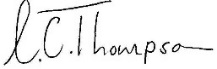 L.C. Thompson